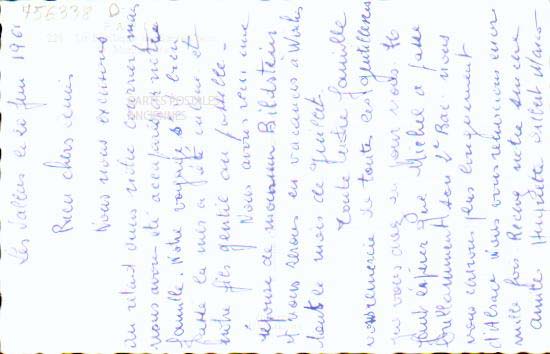 756338 D
CARTES POSTALES
ANCIENNES
Les Sables le 20 juin 1961
Bien chers amis
Nous nous excusons
du retard dans notre courrier, mais
nous avons été accaparés notre
famille. Notre voyage s bien
passé la mer a été et
votre fils gentil au possible.
Nous avons reçu une
réponse de monsieur Bildstein
et nous serons en vacances à
tout le mois de Juillet.
Toute votre famille
vous remercie de toutes les gentillesses
que vous avez eu pour nous. Il
faut espérer que Michel a passé
brillamment son 2e Bac. nous
vous écrirons plus longuement
d'Alsace. Nous vous remercions encore
mille fois. Recevez notre sincère
amitié. Huguette